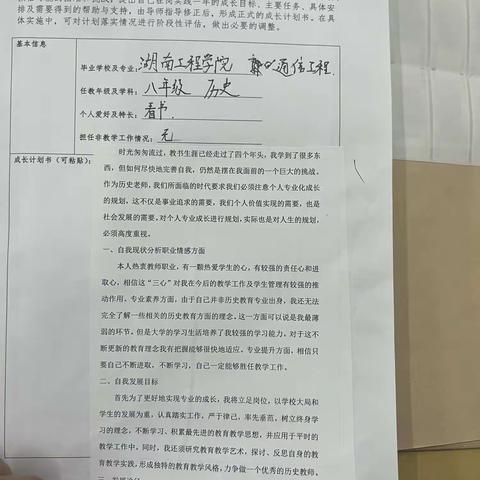 排及需要得到的帮助与支持，由导师指导修正后，形成正式的成长计划书。在具
体实施中，可对计划落实情况进行阶段性评估，做出必要的调整。
基本信息
毕业学校及专业：湖南工程学院 通信工程
任教年级及学科：八年级 历史
个人爱好及特长：看书
担任非教学工作情况：无
成长计划书（可粘贴）：
时光匆匆流过，教书生涯已经走过了四个年头，我学到了很多东
西，但如何尽快地完善自我，仍然是摆在我面前的一个巨大的挑战。
作为历史老师，我们所面临的时代要求我们必须注意个人专业化成长
的规划，这不仅是事业追求的需要，我们个人价值实现的需要，也是
社会发展的需要。对个人专业成长进行规划，实际也是对人生的规划，
必须高度重视。
一、自我现状分析职业情感方面
本人热衷教师职业，有一颗热爱学生的心，有较强的责任心和进
取心，相信这“三心”对我在今后的教学工作及学生管理有较强的推
动作用。专业素养方面，由于自己并非历史教育专业出身，我还无法
完全了解一些相关的历史教育方面的理念。这一方面可以说是我最薄
弱的环节。但是大学的学习生活培养了我较强的学习能力，对于这不
断更新的教育理念我有把握能够很快地适应。专业提升方面，相信只
要自己不断进取，不断学习，自己一定能够胜任教学工作。
二、自我发展目标
首先为了更好地实现专业的成长，我将立足岗位，以学校大局和
学生的发展为重，认真踏实工作，严于律己，率先垂范，树立终身学
习的理念，不断学习、积累最先进的教育教学思想，并应用于平时的
教学工作中。同时，我还须研究教育教学艺术，探讨、反思自身的教
育教学实践，形成独特的教育教学风格，力争做一个优秀的历史教师。